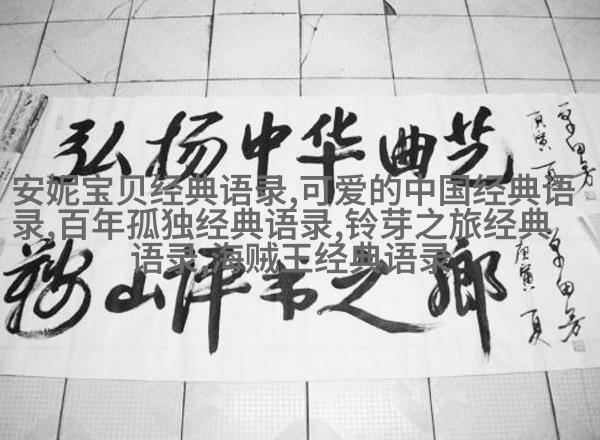 弘扬中华曲艺
庚寅 夏
单田芳
安妮宝贝经典语录,可爱的中国经典语
录,百年孤独经典语录,铃芽之旅经典
语录,海贼王经典语录
鞍山评书之鄉
庚寅 夏
单田芳